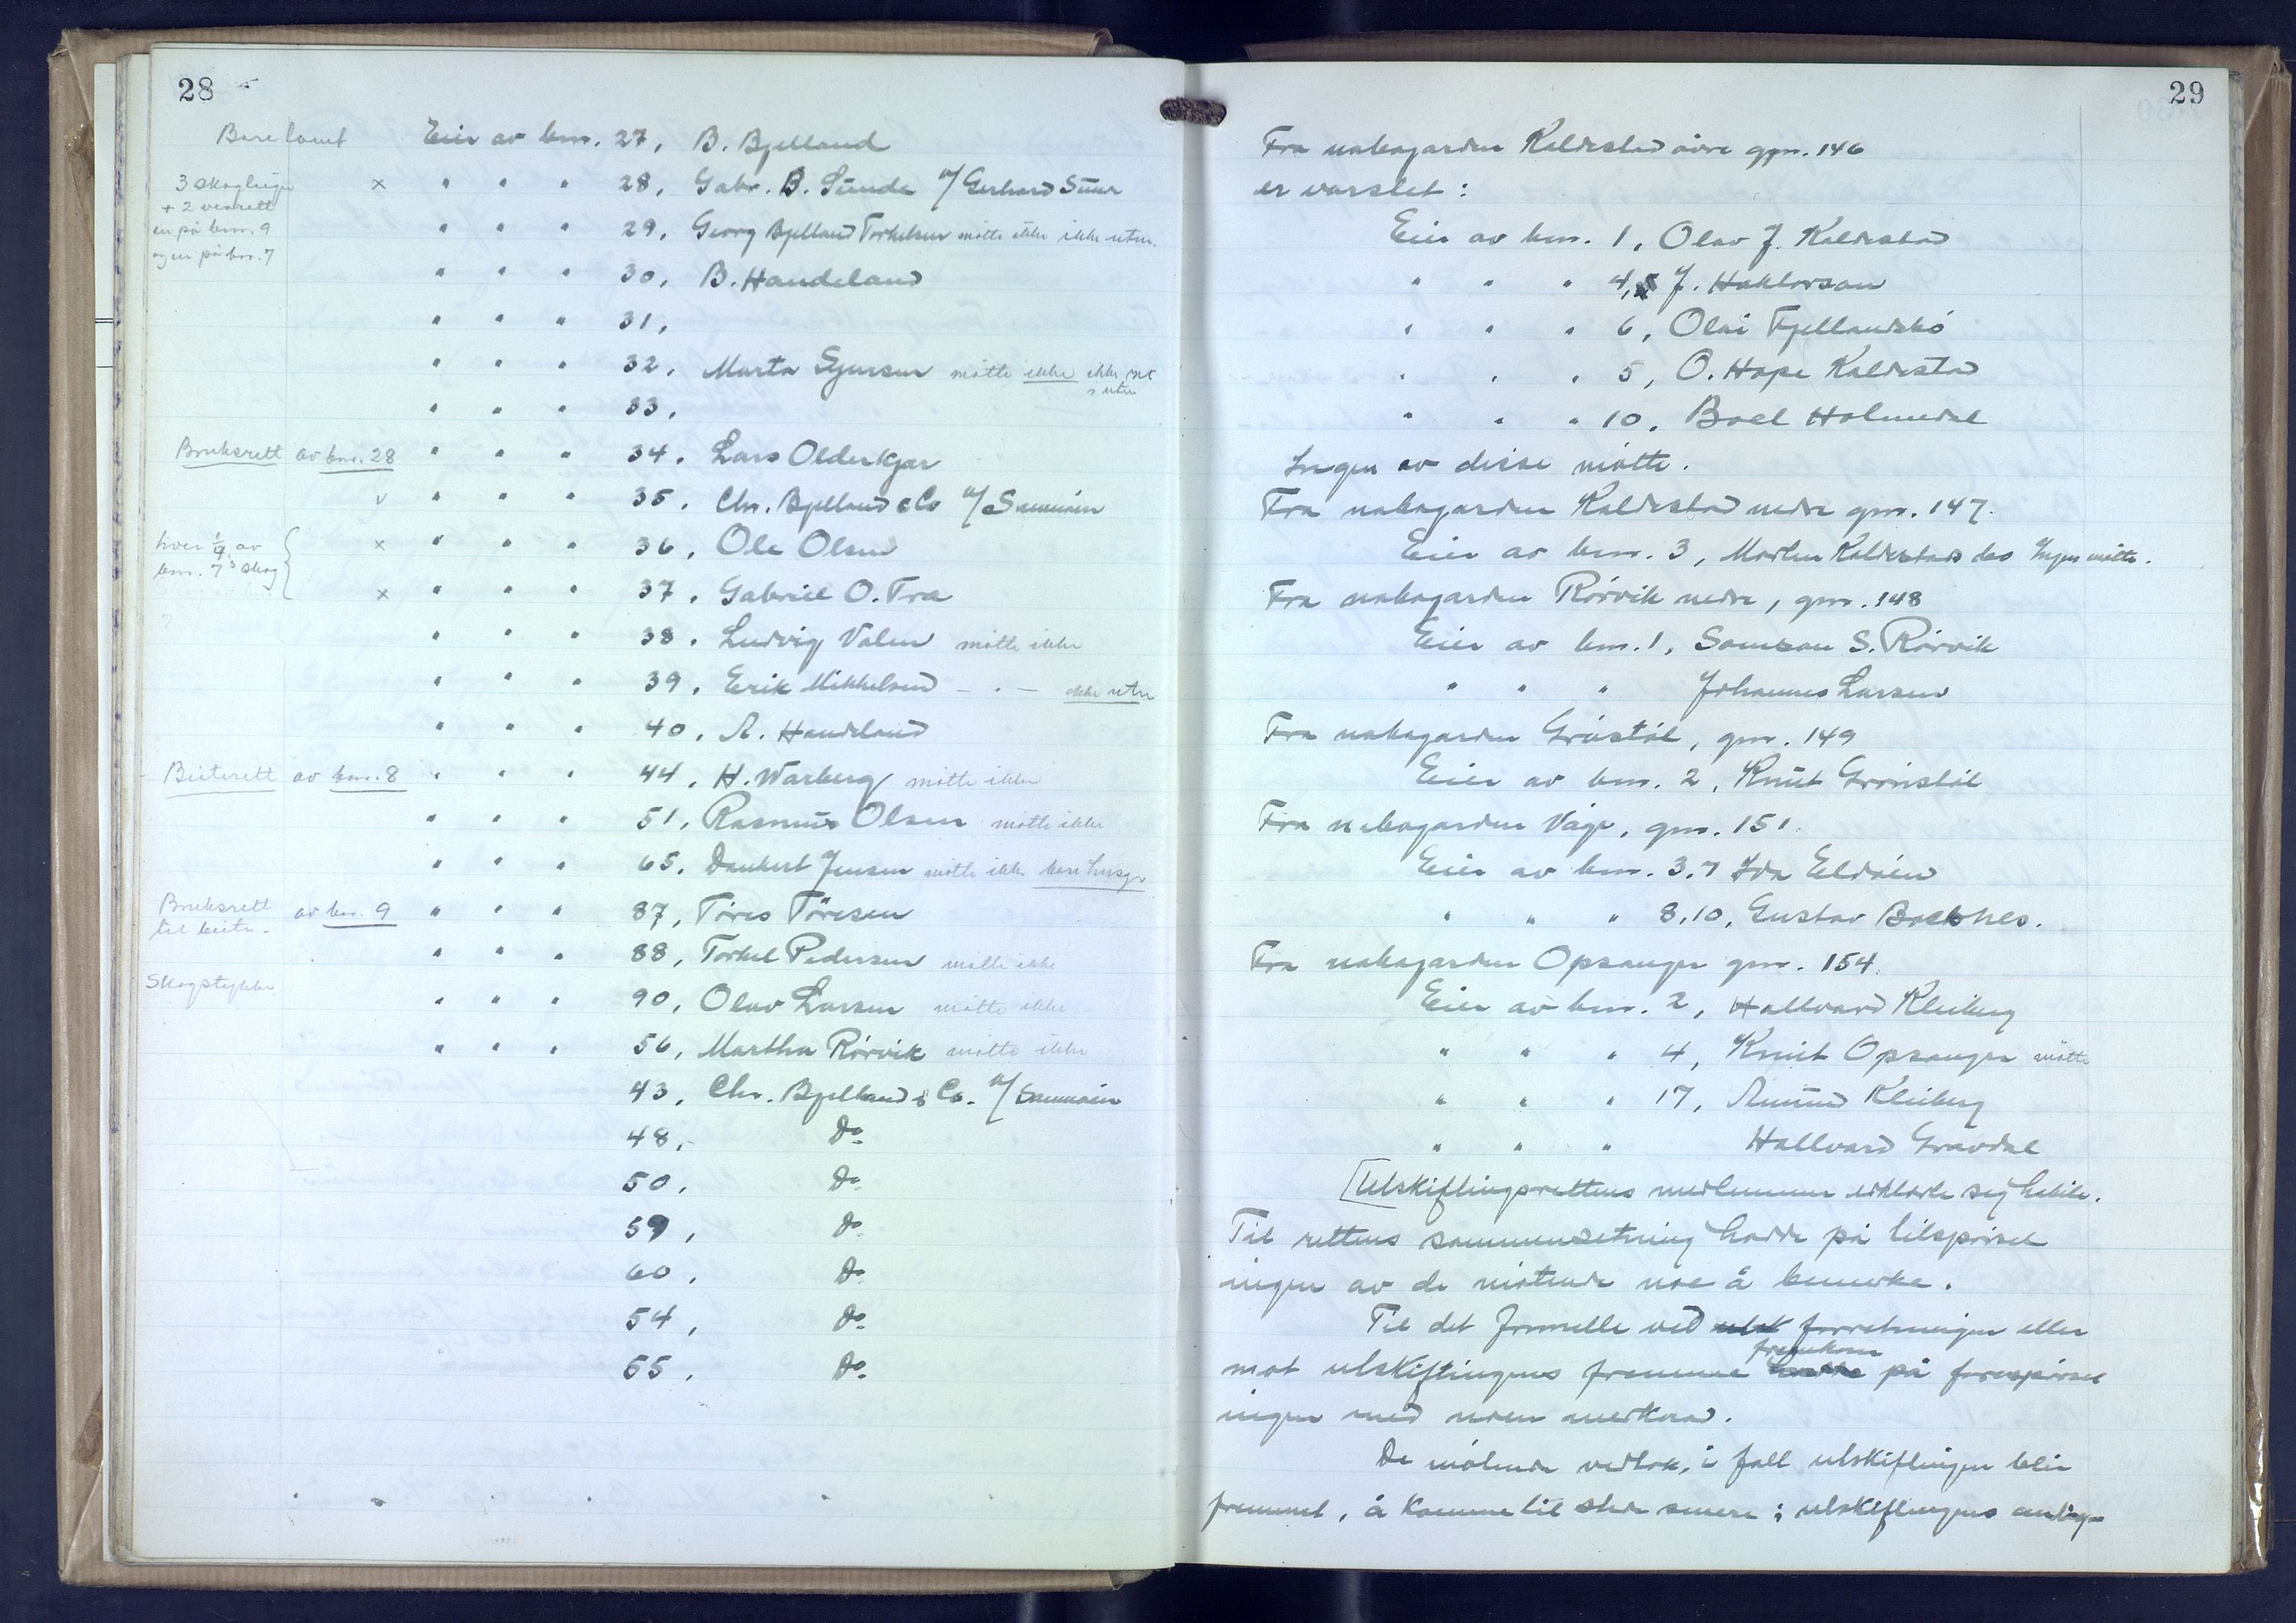 28
Bare tomt Eier av bnr. 27, B. Bjelland
3 skogteiger × " " " 28, Gabr. B. Sunde v/ Gerhard Sunde
+ 2 vedrett
en på bnr. 9 " " " 29, Georg Bjelland Torkelsen møtte ikke ikke utm.
og en på bnr. 7 " " " 30, B. Handeland
" " " 31,
" " " 32, Marta Sjursen møtte ikke ikke
" " " 33,
Bruksrett av bnr. 28 " " " 34, Lars Olderkjær
v " " " 35, Chr. Bjelland & Co v/ Sunnaas
hver 1/4 av × " " " 36, Ole Olsen
bnr. 7's skog
× " " " 37, Gabriel O. Træ
" " " 38, Ludvig Valen møtte ikke
" " " 39, Erik Mikkelsen – " – ikke utm
" " " 40, A. Handeland
Beiterett av bnr. 8 " " " 44, H. Warberg møtte ikke
" " " 51, Rasmus Olsen møtte ikke
" " " 65, Dankert Jensen møtte ikke bare
Bruksrett av bnr. 9 " " " 87, Tøres Tøresen
til beite.
" " " 88, Torkel Pedersen møtte ikke
Skogstykke
" " " 90, Olav Larsen møtte ikke
" " " 56, Martha Rørvik møtte ikke
43, Chr. Bjelland & Co. v/
48, Do
50, Do
59, Do
60, Do
54, Do
55, Do
29
Fra nabogarden Kaldestad øvre gnr. 146
er varslet:
Eier av bnr. 1, Olav J. Kaldestad
" " " 4, J. Haktorson
" " " 6, Olai Fjellandsbø
" " " 5, O. Hope Kaldestad
" " " 10, Boel Holmedal
Ingen av disse møtte.
Fra nabogarden Kaldestad nedre gnr. 147.
Eier av bnr. 3, Morten Kaldestads dbo Ingen møtte.
Fra nabogarden Rørvik nedre, gnr. 148
Eier av bnr. 1, Samson S. Rørvik
" " " Johannes Larsen
Fra nabogarden Grøstøl, gnr. 149
Eier av bnr. 2, Knut Grønstøl
Fra nabogarden Våge, gnr. 151.
Eier av bnr. 3.7 Ida Eldøen
" " " 8,10, Gustav Baekhes.
Fra nabogarden Opsanger gnr. 154.
Eier av bnr. 2, Hallvard Kleiberg
" " " 4, Knut Opsanger møtte
" " " 17, Amund Kleiberg
" " " Hallvard Gravdal
[Utskiftingsrettens medlemmer erklærte seg habile.
Til rettens sammensetning hadde på tilspørsel
ingen av de møtende noe å bemerke.
Til det formelle ved utsk forretningen eller
fremkom
mot utskiftingens fremme hadde på forespørsel
ingen med noen merknad.
De møtende vedtok, i fall utskiftingen blir
fremmet, å komme til stede senere i utskiftingens anlig-